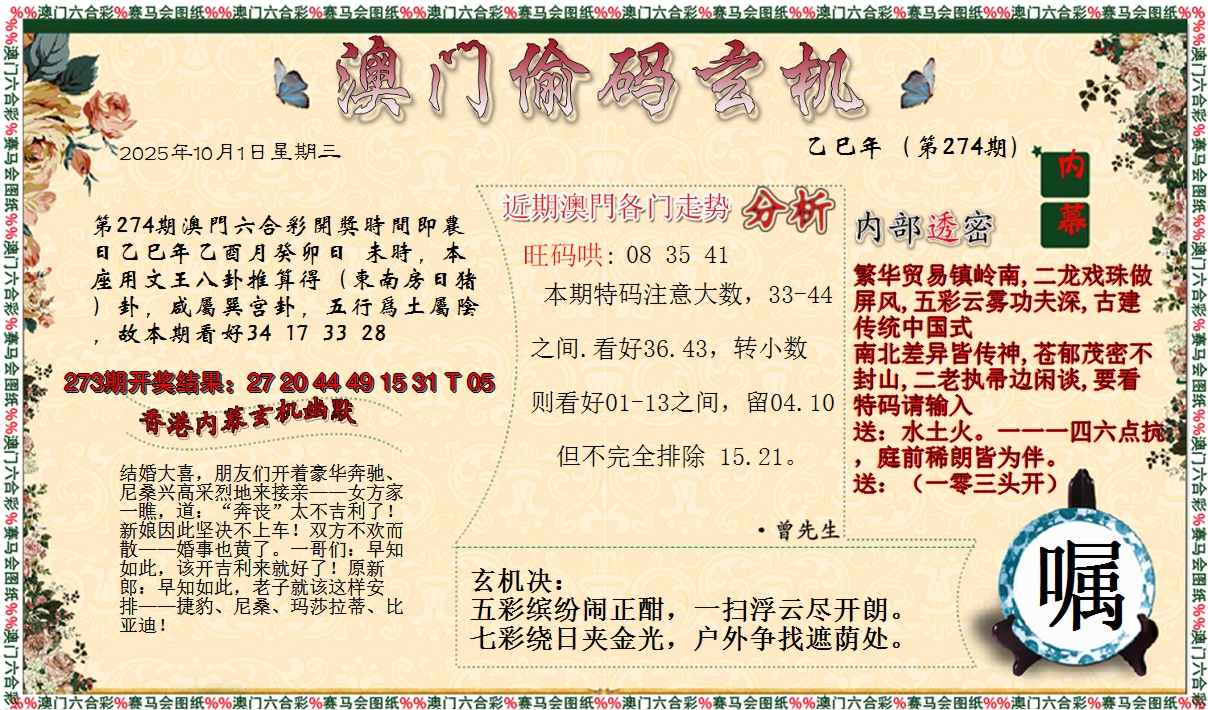 %%澳门六合彩%赛马会图纸%%澳门六合彩%赛马会图纸%%澳门六合彩%赛马会图纸%%澳门六合彩%赛马会图纸%%澳门六合彩%赛马会图纸%%澳门六合彩%赛马会图纸%%
澳门偷码玄机
2025年10月1日星期三
乙巳年（第274期）
第274期澳門六合彩開獎時間即農
日乙巳年乙酉月癸卯日 未時，本
座用文王八卦推算得（東南房日猪
）卦，咸屬巽宫卦，五行爲土屬陰
，故本期看好34 17 33 28
273期开奖结果：27 20 44 49 15 31 T 05
香港内幕玄机幽默
结婚大喜，朋友们开着豪华奔驰、
尼桑兴高采烈地来接亲——女方家
一瞧，道：“奔丧”太不吉利了！
新娘因此坚决不上车！双方不欢而
散——婚事也黄了。一哥们：早知
如此，该开吉利来就好了！原新
郎：早知如此，老子就该这样安
排——捷豹、尼桑、玛莎拉蒂、比
亚迪！
近期澳門各门走势 分析
旺码哄: 08 35 41
本期特码注意大数，33-44
之间.看好36.43，转小数
则看好01-13之间，留04.10
但不完全排除 15.21。
·曾先生
内幕
内部透密
繁华贸易镇岭南,二龙戏珠做
屏风,五彩云雾功夫深,古建
传统中国式
南北差异皆传神,苍郁茂密不
封山,二老执帚边闲谈,要看
特码请输入
送：水土火。一一一四六点抗
，庭前稀朗皆为伴。
送：（一零三头开）
玄机决：
五彩缤纷闹正酣，一扫浮云尽开朗。
七彩绕日夹金光，户外争找遮荫处。
嘱
%%澳门六合彩%赛马会图纸%%澳门六合彩%赛马会图纸%%澳门六合彩%赛马会图纸%%澳门六合彩%赛马会图纸%%澳门六合彩%赛马会图纸%%澳门六合彩%赛马会图纸%%